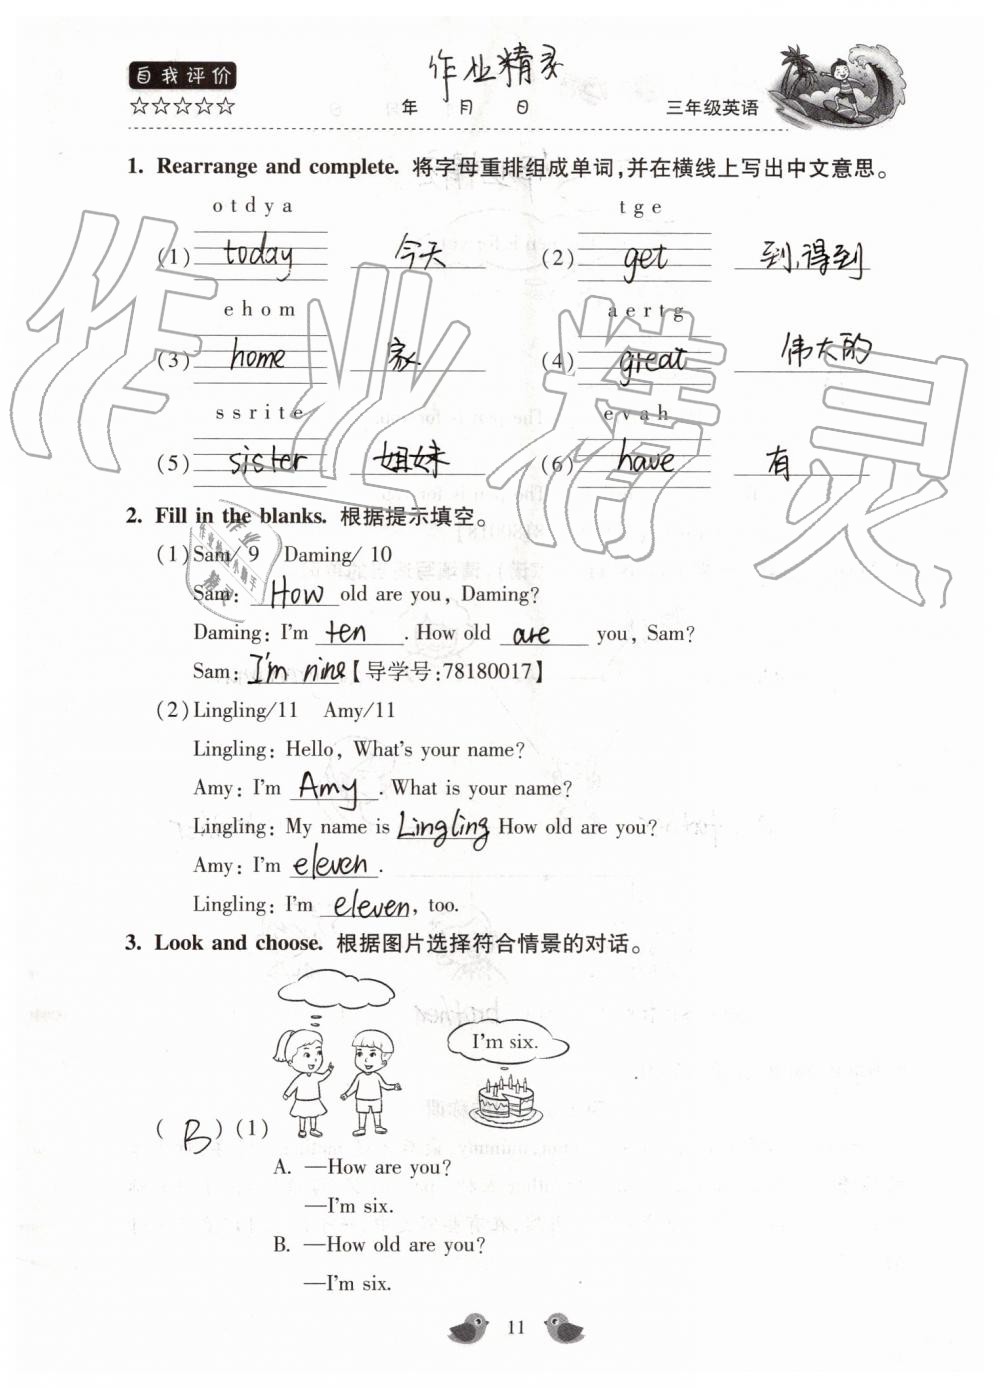 自我评价
作业精灵
☆☆☆☆☆ 年 月 日 三年级英语
1. Rearrange and complete. 将字母重排组成单词,并在横线上写出中文意思。
o t d y a t g e
(1) today 今天 (2) get 到,得到
e h o m a e r t g
(3) home 家 (4) great 伟大的
s s r i t e e v a h
(5) sister 姐妹 (6) have 有
2. Fill in the blanks. 根据提示填空。
(1) Sam/ 9 Daming/ 10
Sam: How old are you, Daming?
Daming: I'm ten. How old are you, Sam?
Sam: I'm nine【导学号:78180017】
(2) Lingling/11 Amy/11
Lingling: Hello, What's your name?
Amy: I'm Amy. What is your name?
Lingling: My name is Lingling How old are you?
Amy: I'm eleven.
Lingling: I'm eleven, too.
3. Look and choose. 根据图片选择符合情景的对话。
I'm six.
( B ) (1)
A. —How are you?
—I'm six.
B. —How old are you?
—I'm six.
11
作业精灵